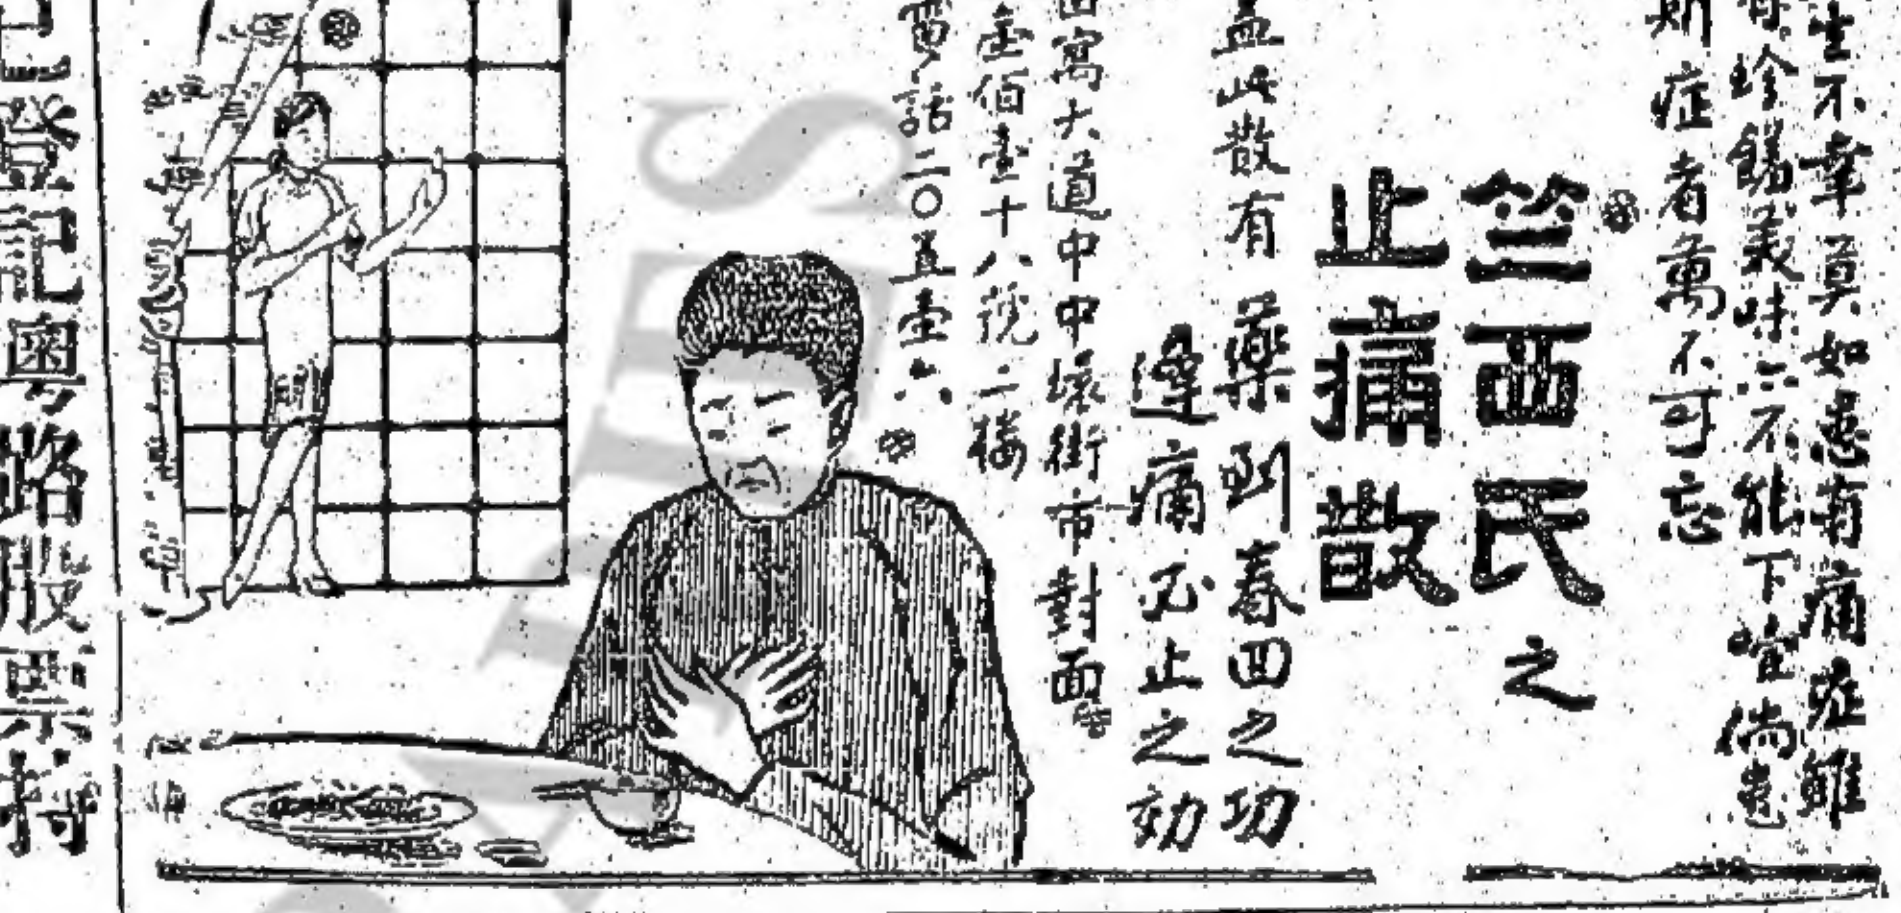 生不幸莫如患有痛症雖
有珍饈美味亦不能下嚥倘患
斯症者萬不可忘
竺西氏之
止痛散
蓋此散有藥到春回之功
逢痛必止之効
大道中中環街市對面
壹佰壹十八號二樓
電話二〇五壹六
已登記粵路股票持